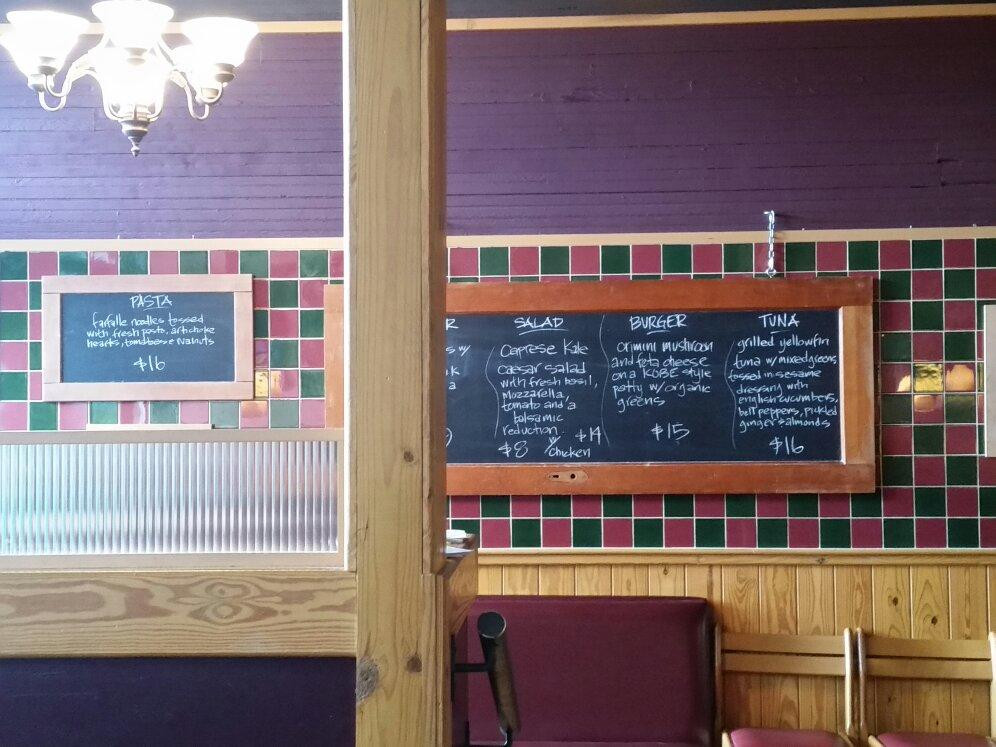 PASTA
farfalle noodles tossed
with fresh pesto, artichoke
hearts, tomatoes & walnuts
$16
R
w/
k
a
SALAD
Caprese Kale
Caesar salad
with fresh basil,
mozzarella,
tomato and a
balsamic
reduction.
$8 w/ Chicken $14
BURGER
Crimini mushroom
and feta cheese
on a KOBE style
patty w/ organic
greens
$15
TUNA
grilled yellowfin
tuna w/ mixed greens
tossed in sesame
dressing with
english cucumbers,
bell peppers, pickled
ginger & almonds
$16